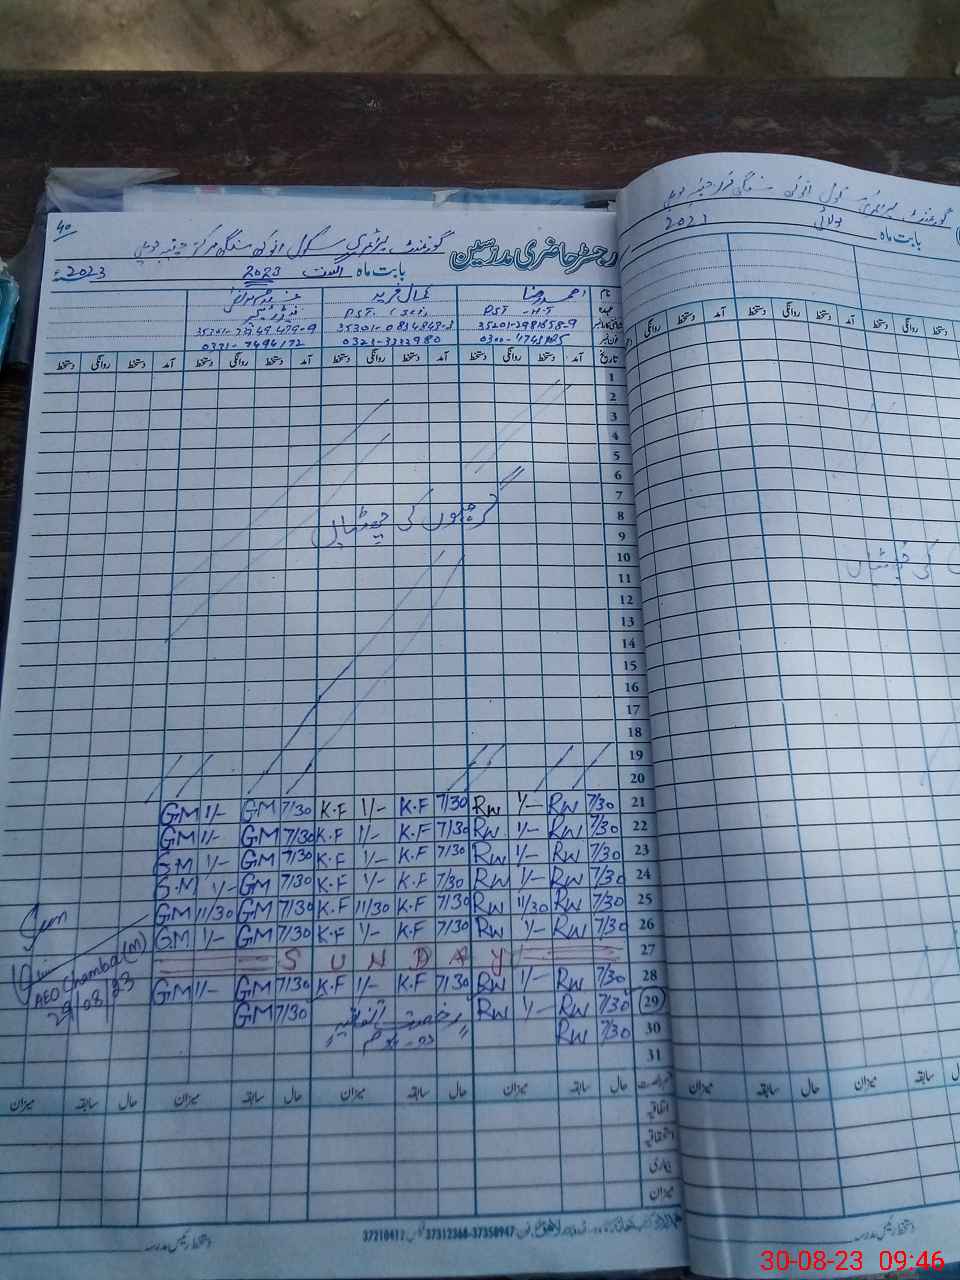 40
گورنمنٹ پرائمری سکول انوکھ سنگھ مرکز چمبہ
رجسٹر حاضری مدرسین
بابت ماہ اگست 2023 2023
نام احمد رضا کمال فرید
عہدہ PST - H.T PST.
0321-3333980
تاریخ آمد دستخط روانگی دستخط آمد دستخط روانگی دستخط آمد دستخط روانگی دستخط آمد دستخط روانگی دستخط
1
2
3
4
5
6
7
8
گرمیوں کی چھٹیاں
9
10
11
12
13
14
15
16
17
18
19
20
GM 1/- GM 7/30 K.F 1/- K.F 7/30 RW 1/- RW 7/30 21
GM 1/- GM 7/30 K.F 1/- K.F 7/30 RW 1/- RW 7/30 22
GM 1/- GM 7/30 K.F 1/- K.F 7/30 RW 1/- RW 7/30 23
GM 1/- GM 7/30 K.F 1/- K.F 7/30 RW 1/- RW 7/30 24
GM 11/30 GM 7/30 K.F 11/30 K.F 7/30 RW 11/30 RW 7/30 25
GM 1/- GM 7/30 K.F 1/- K.F 7/30 RW 1/- RW 7/30 26
S U N D A Y 27
GM 1/- GM 7/30 K.F 1/- K.F 7/30 RW 1/- RW 7/30 28
GM 7/30 رخصت اتفاقیہ RW 1/- RW 7/30 29
RW 7/30 30
31
AEO Chamba (M)
29/08/23
حال سابقہ میزان حال سابقہ میزان حال سابقہ میزان حال سابقہ میزان
اتفاقیہ
استحقاقیہ
بیماری
میزان
37210417 37312368-37350947
دستخط رئیس مدرسہ
گورنمنٹ پرائمری سکول انوکھ سنگھ مرکز چمبہ
بابت ماہ جولائی 2023
کی چھٹیاں
30-08-23 09:46